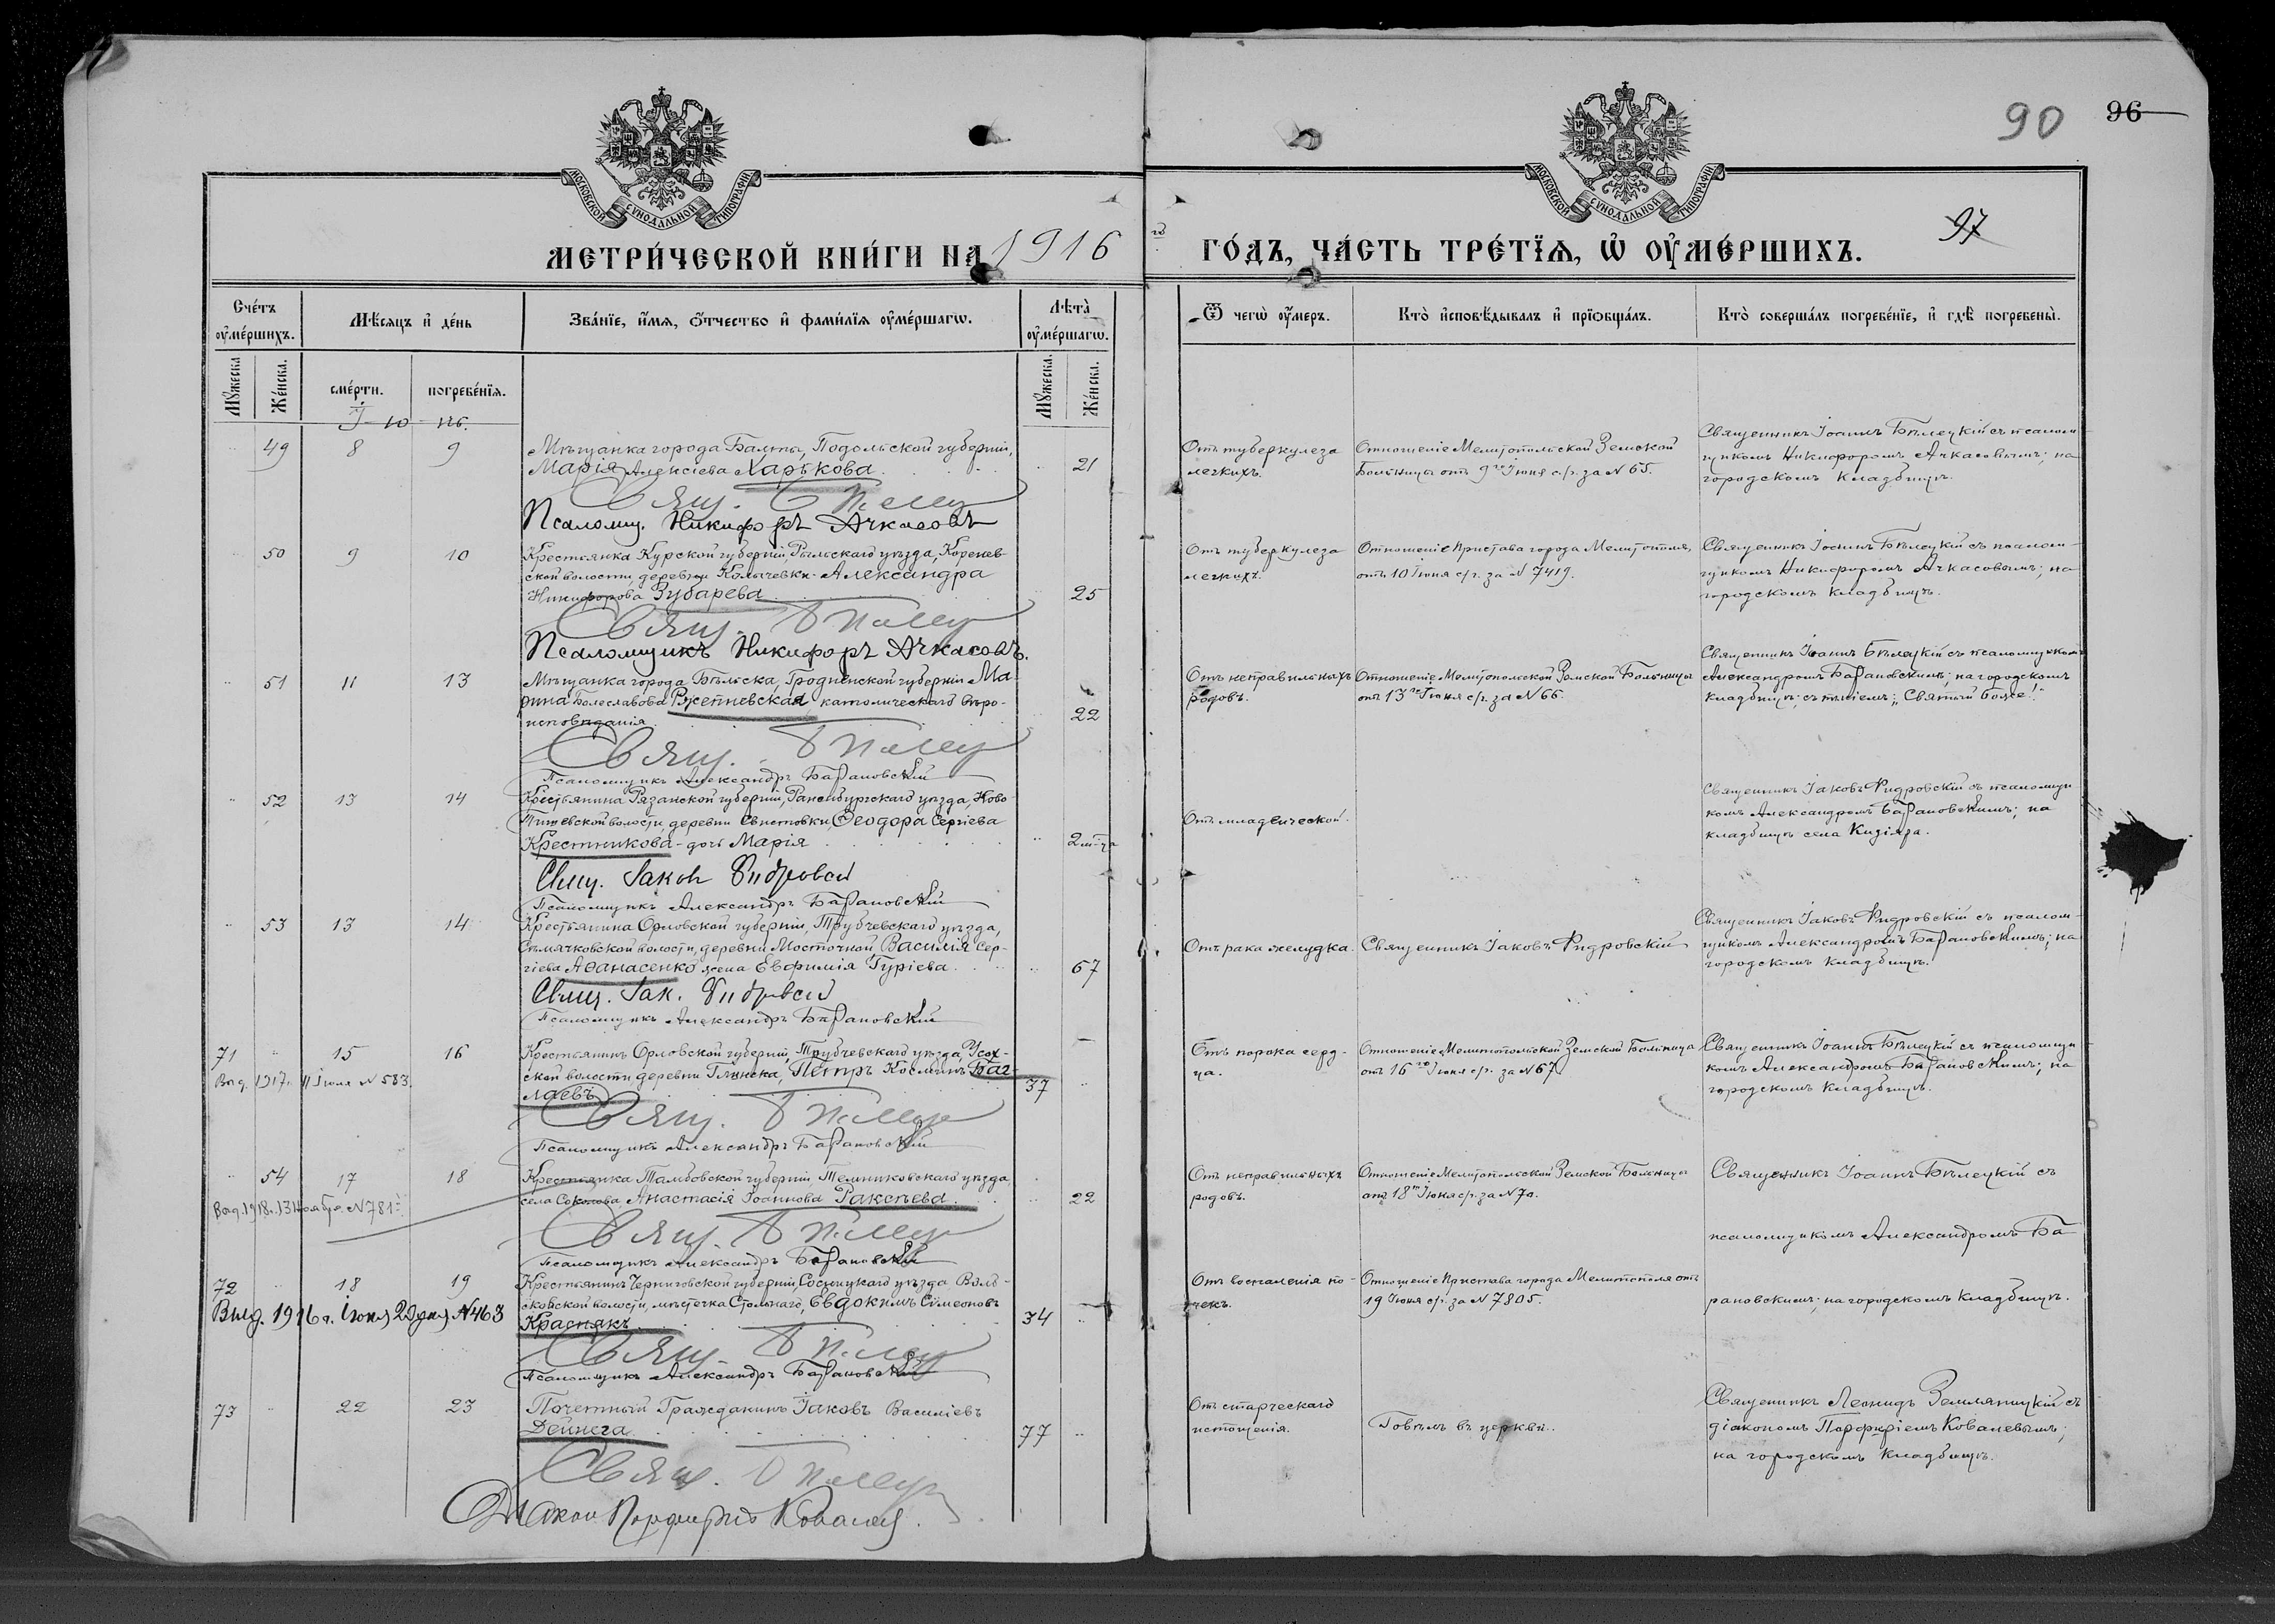 90 96
97
МОСКОВСКОЙ СѴНОДАЛЬНОЙ ТИПОГРАФІИ
МОСКОВСКОЙ СѴНОДАЛЬНОЙ ТИПОГРАФІИ
МЕТРИ́ЧЕСКОЙ КНИ́ГИ НА 1916 го
ГО́ДЪ, ЧА́СТЬ ТРЕ́ТЇѦ, Ѡ҆ ОУ҆МЕ́РШИХЪ.
Сче́тъ оу҆ме́ршихъ.
Мѣ́сѧцъ и҆ де́нь
Зва́нїе, и҆́мѧ, ѻ҆́тчество и҆ фами́лїѧ оу҆ме́ршагѡ.
Лѣ́та оу҆ме́ршагѡ.
Ѿ чегѡ̀ оу҆́меръ.
Кто̀ и҆сповѣ́дывалъ и҆ прїѡбща́лъ.
Кто̀ соверша́лъ погребе́нїе, и҆ гдѣ̀ погребены̀.
Мꙋ́жеска. Же́нска. сме́рти. погребе́нїѧ. Мꙋ́жеска. Же́нска.
49 8 9
Мѣщанка города Балты, Подольской губерніи,
Марія Алексіева Харькова 21
Свящ.
Псаломщ. Никифоръ Ачкасовъ
Отъ туберкулеза
легкихъ.
Отношеніе Мелитопольской Земской
Больницы отъ 9го Іюня с/г. за N 65.
Священникъ Іоаннъ Бѣлецкій съ псалом-
щикомъ Никифоромъ Ачкасовымъ; на
городскомъ кладбищѣ.
50 9 10
Крестьянка Курской губерніи, Рыльскаго уѣзда, Коренев-
ской волости, деревни Колычевки Александра
Никифорова Зубарева 25
Свящ.
Псаломщикъ Никифоръ Ачкасовъ.
Отъ туберкулеза
легкихъ.
Отношеніе Пристава города Мелитополя,
отъ 10 Іюня с/г. за N 7419.
Священникъ Іоаннъ Бѣлецкій съ псалом-
щикомъ Никифоромъ Ачкасовымъ; на
городскомъ кладбищѣ.
51 11 13
Мѣщанка города Бѣльска, Гродненской губерніи Ма-
рина Болеславова Ржепневская католическаго вѣро-
исповѣданія 22
Свящ.
Псаломщикъ Александръ Барановскій
Отъ неправильныхъ
родовъ.
Отношеніе Мелитопольской Земской Больницы
отъ 13го Іюня с/г. за N 66.
Священникъ Іоаннъ Бѣлецкій съ псаломщикомъ
Александромъ Барановскимъ; на городскомъ
кладбищѣ; съ пѣніемъ: „Святый Боже!“
52 13 14
Крестьянина Рязанской губерніи, Раненбургскаго уѣзда, Ново-
волости, деревни Свистовки, Ѳеодора Сергіева
Крестникова - дочь Марія 2 м-ца
Свящ. Іаковъ
Псаломщикъ Александръ Барановскій
Отъ младенческой.
Священникъ Іаковъ Ѳидровскій съ псаломщи-
комъ Александромъ Барановскимъ; на
кладбищѣ села Кизіяра.
53 13 14
Крестьянина Орловской губерніи, Трубчевскаго уѣзда,
Сѣмячковской волости, деревни Мосточной Василія Сер-
гіева Аѳанасенко жена Евфимія Гуріева 67
Свящ. Іак.
Псаломщикъ Александръ Барановскій
Отъ рака желудка.
Священникъ Іаковъ Ѳидровскій
Священникъ Іаковъ Ѳидровскій съ псалом-
щикомъ Александромъ Барановскимъ; на
городскомъ кладбищѣ.
71 15 16
Выд. 1917г. 11 Іюля N 583.
Крестьянинъ Орловской губерніи, Трубчевскаго уѣзда, Усох-
ской волости, деревни Глинска, Петръ Косминъ Баг-
лаевъ 37
Свящ.
Псаломщикъ Александръ Барановскій
Отъ порока серд-
ца.
Отношеніе Мелитопольской Земской Больницы
отъ 16го Іюня с/г. за N 67.
Священникъ Іоаннъ Бѣлецкій съ псаломщи-
комъ Александромъ Барановскимъ; на
городскомъ кладбищѣ.
54 17 18
Выд. 1918г. 13 Ноября N 781
Крестьянка Тамбовской губерніи, Темниковскаго уѣзда,
села Соколова, Анастасія Іоаннова Раксѣева 22
Свящ.
Псаломщикъ Александръ Барановскій
Отъ неправильныхъ
родовъ.
Отношеніе Мелитопольской Земской Больницы
отъ 18го Іюня с/г. за N 70.
Священникъ Іоаннъ Бѣлецкій съ
псаломщикомъ Александромъ Ба-
рановскимъ; на городскомъ кладбищѣ.
72 18 19
Выд. 1916 г. Іюня 22 дня N 463
Крестьянинъ Черниговской губерніи, Сосницкаго уѣзда Воло-
сковской волости, мѣстечка Стольнаго, Евдокимъ Сѵмеоновъ
Краснякъ 34
Свящ.
Псаломщикъ Александръ Барановскій
Отъ воспаленія по-
чекъ.
Отношеніе Пристава города Мелитополя отъ
19 Іюня с/г. за N 7805.
73 22 23
Почетный Гражданинъ Іаковъ Василіевъ
Дейнега 77
Свящ.
Діаконъ Порфирій Ковалевъ.
Отъ старческаго
истощенія.
Говѣлъ въ церкви.
Священникъ Леонидъ Земляницкій съ
діакономъ Порфиріемъ Ковалевымъ;
на городскомъ кладбищѣ.